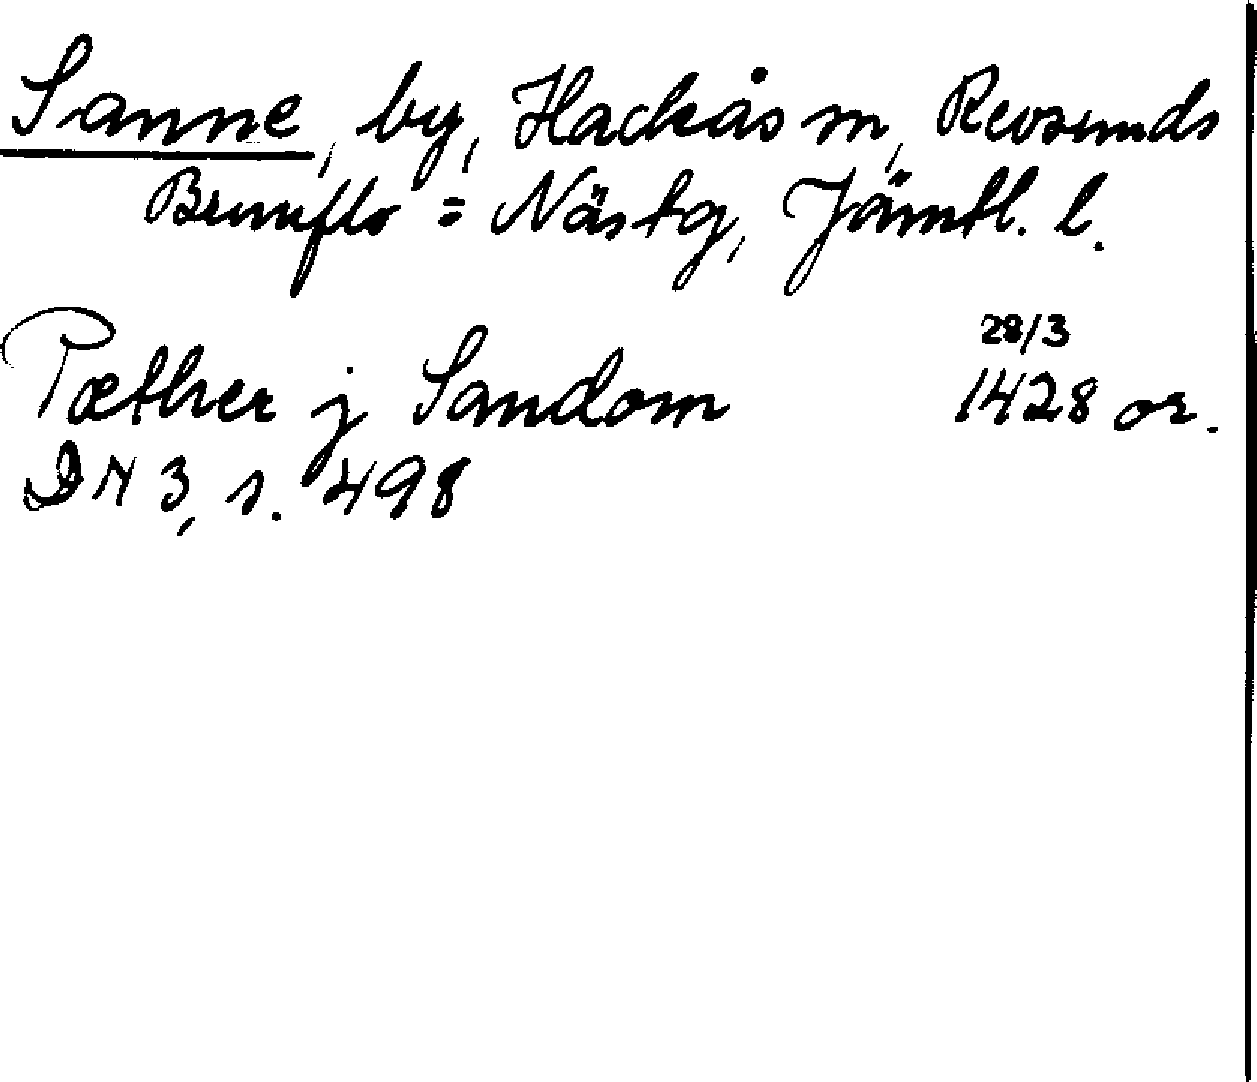 Sanne, by, Hackås sn, Revsunds
Brunflo = Näs tg, Jämtl. l.
Pæther j Sandom 28/3 1428 or.
DN 3, s. 498